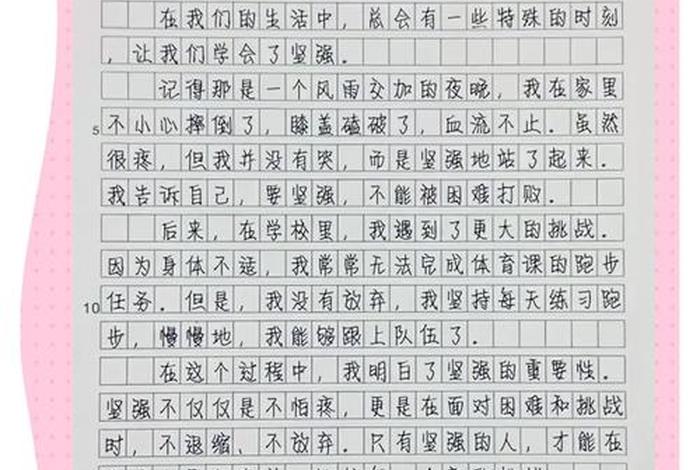 在我们的生活中，总会有一些特殊的时刻
，让我们学会了坚强．
记得那是一个风雨交加的夜晚，我在家里
5 不小心摔倒了，膝盖磕破了，血流不止．虽然
很疼，但我并没有哭，而是坚强地站了起来．
我告诉自己，要坚强，不能被困难打败．
后来，在学校里，我遇到了更大的挑战．
因为身体不适，我常常无法完成体育课的跑步
10 任务．但是，我没有放弃，我坚持每天练习跑
步，慢慢地，我能够跟上队伍了．
在这个过程中，我明白了坚强的重要性．
坚强不仅仅是不怕疼，更是在面对困难和挑战
时，不退缩、不放弃．只有坚强的人，才能在